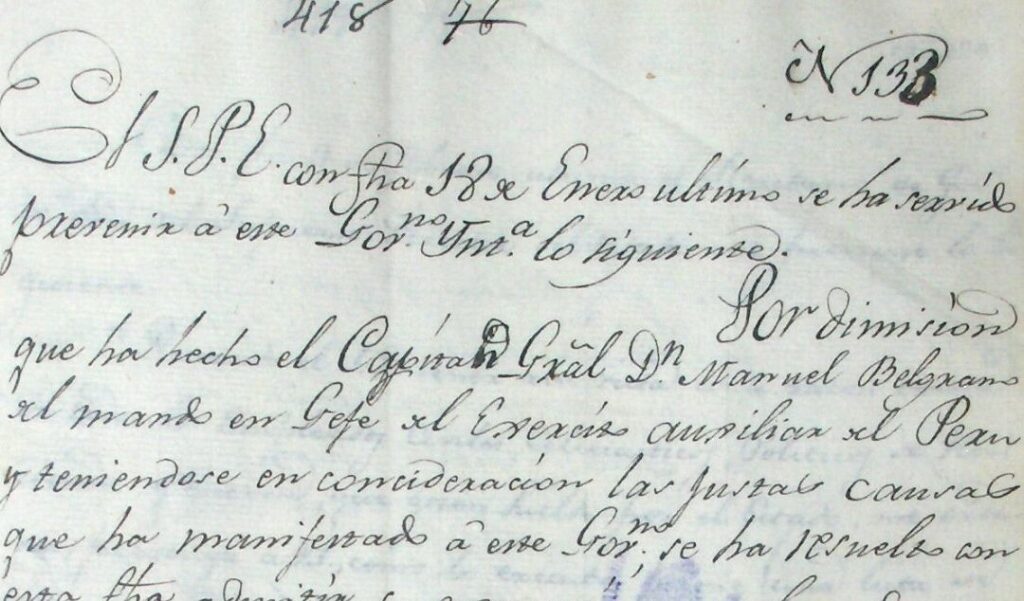 418 76
N 133
El S. P. E. con fha 18 de Enero ultimo se ha servido
prevenir â este Gov.no Ynt.a lo siguiente.
Por dimision
que ha hecho el Capitan Grãl Dn Manuel Belgrano
del mando en Gefe del Exercito auxiliar del Peru
y teniendose en concideración las justas causas
que ha manifestado â este Gov.no se ha resuelto con
esta fha admitir